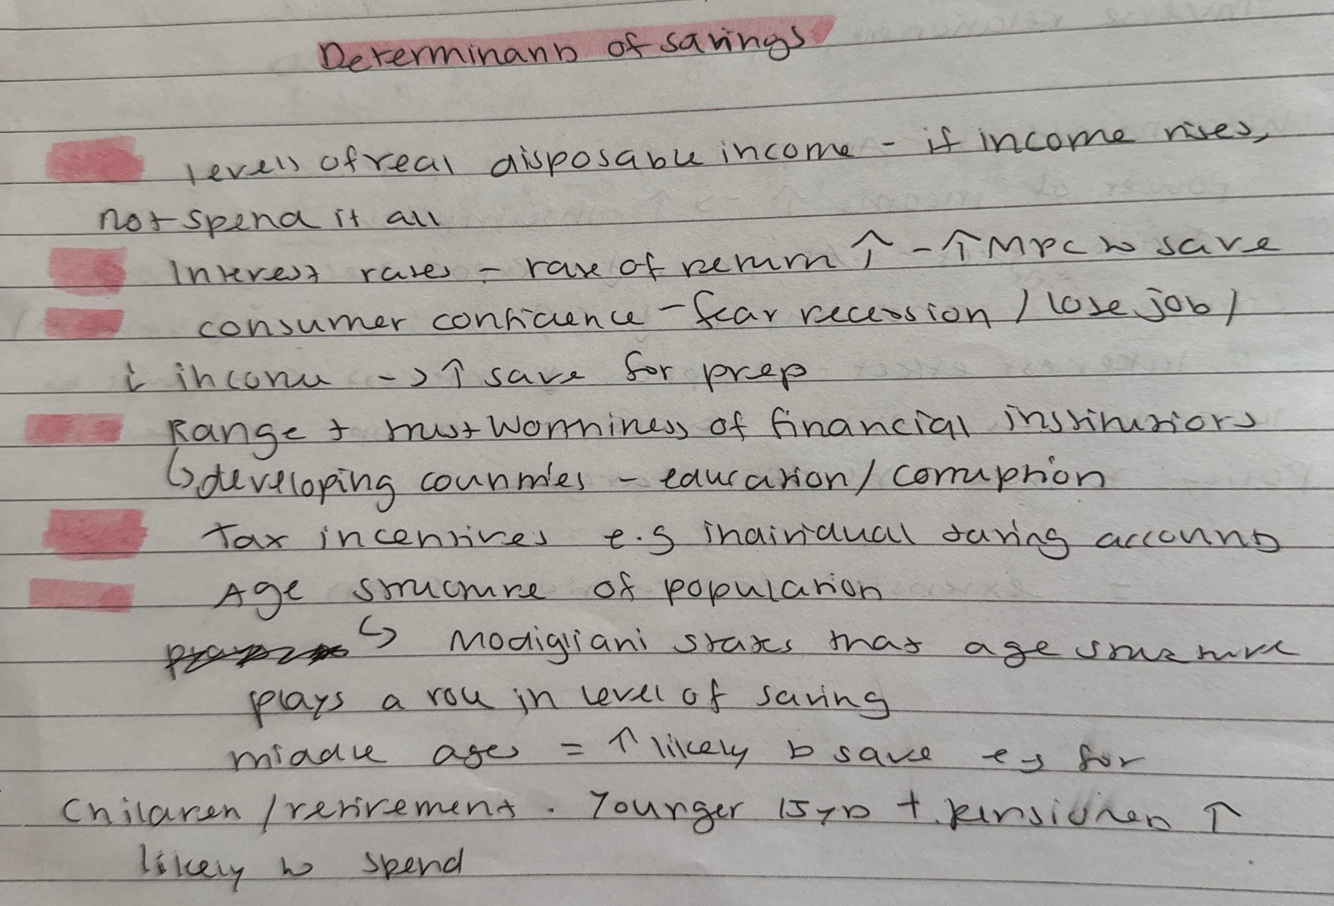 Determinants of savings
levels of real disposable income - if income rises,
not spend it all
Interest rates - rate of return ↑ - ↑ MPC to save
consumer confidence - fear recession / lose job /
↓ income -> ↑ save for prep
Range + trustworthiness of financial institutions
↳ developing countries - education / corruption
Tax incentives e.g individual saving accounts
Age structure of population
↳ Modigliani states that age structure
plays a role in level of saving
middle ages = ↑ likely to save eg for
children / retirement. Younger 15yo + pensioners ↑
likely to spend